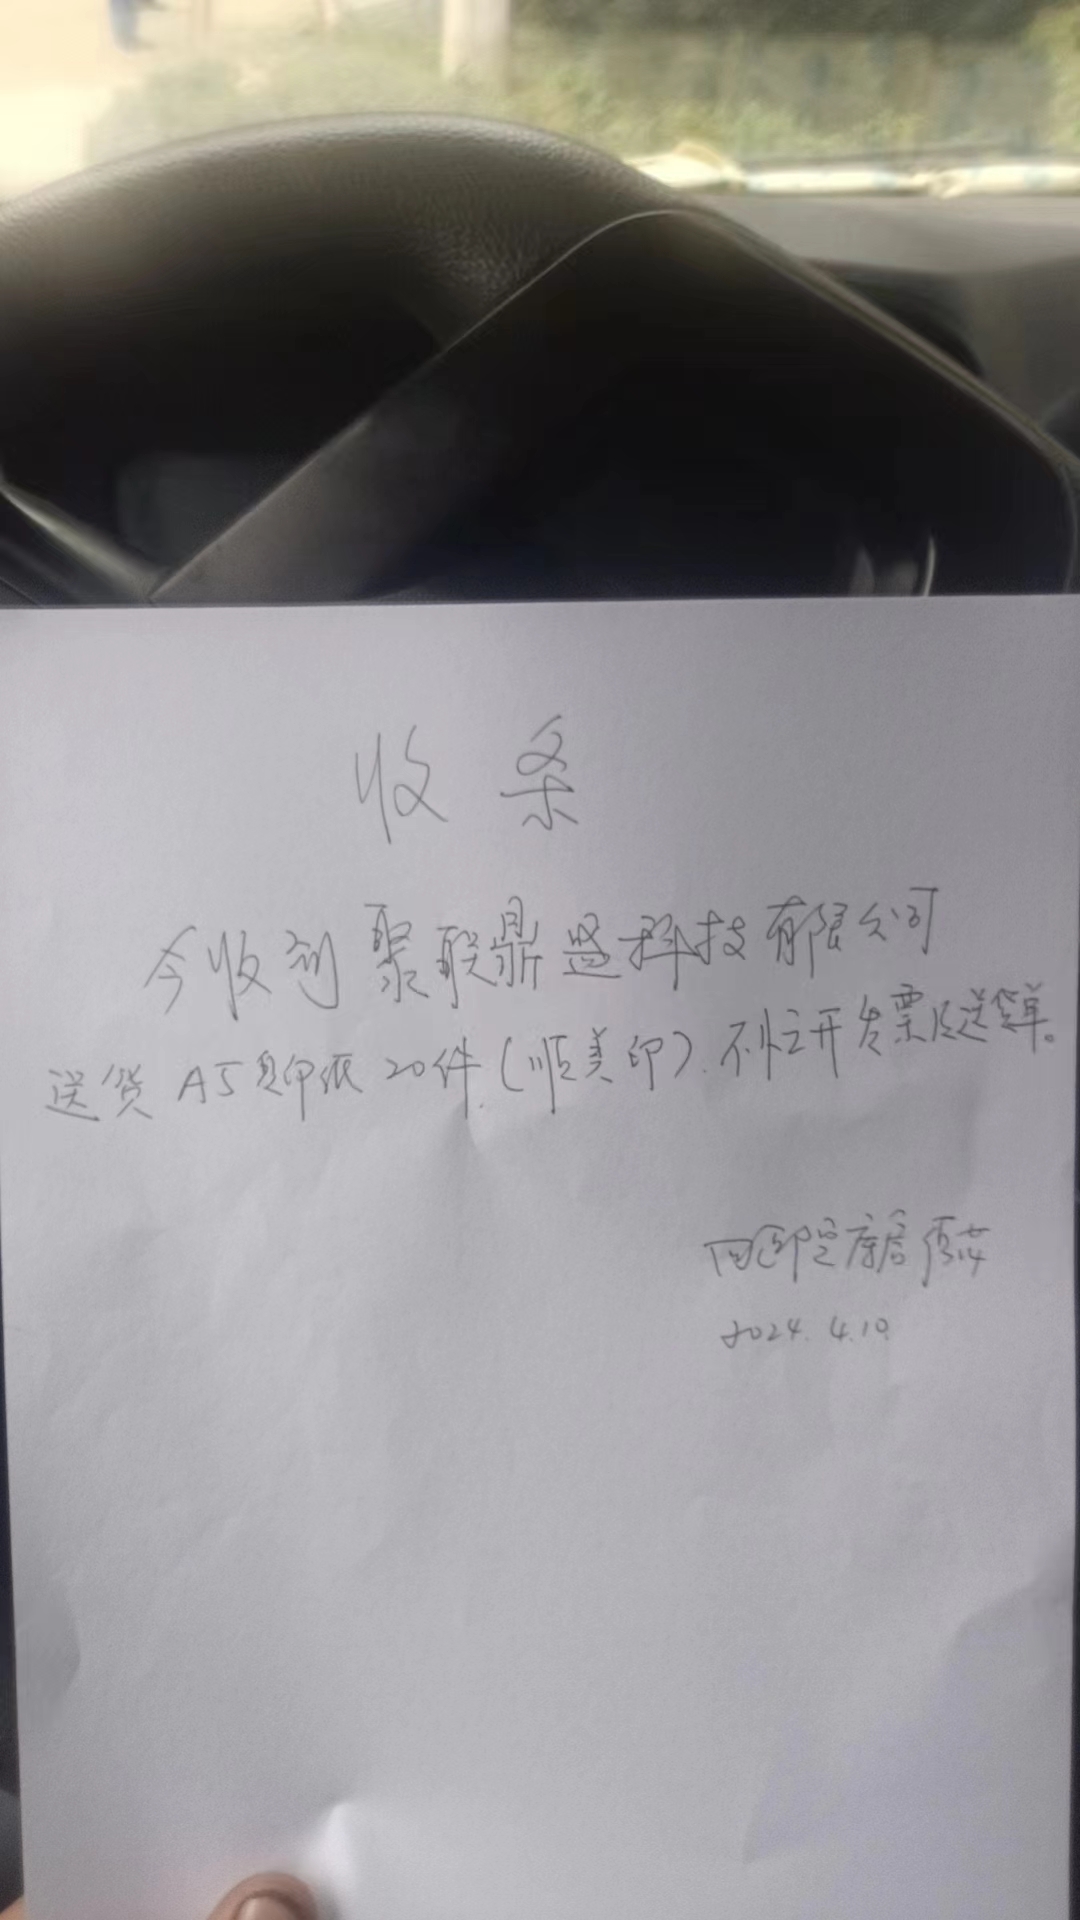 收条
今收到聚联鼎盛科技有限公司
送货A5复印纸20件.(顺美印).不忙开发票及送货单。
2024.4.10